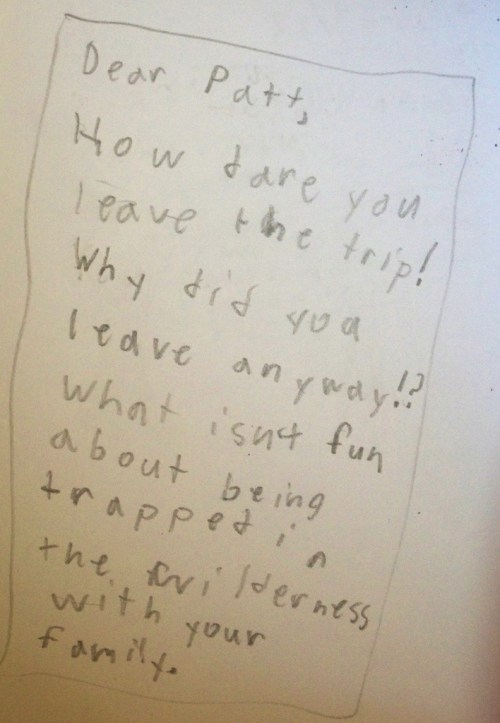 Dear Patt,
How dare you
leave the trip!
Why did you
leave anyway!?
What isnt fun
about being
trapped in
the wilderness
with your
family.